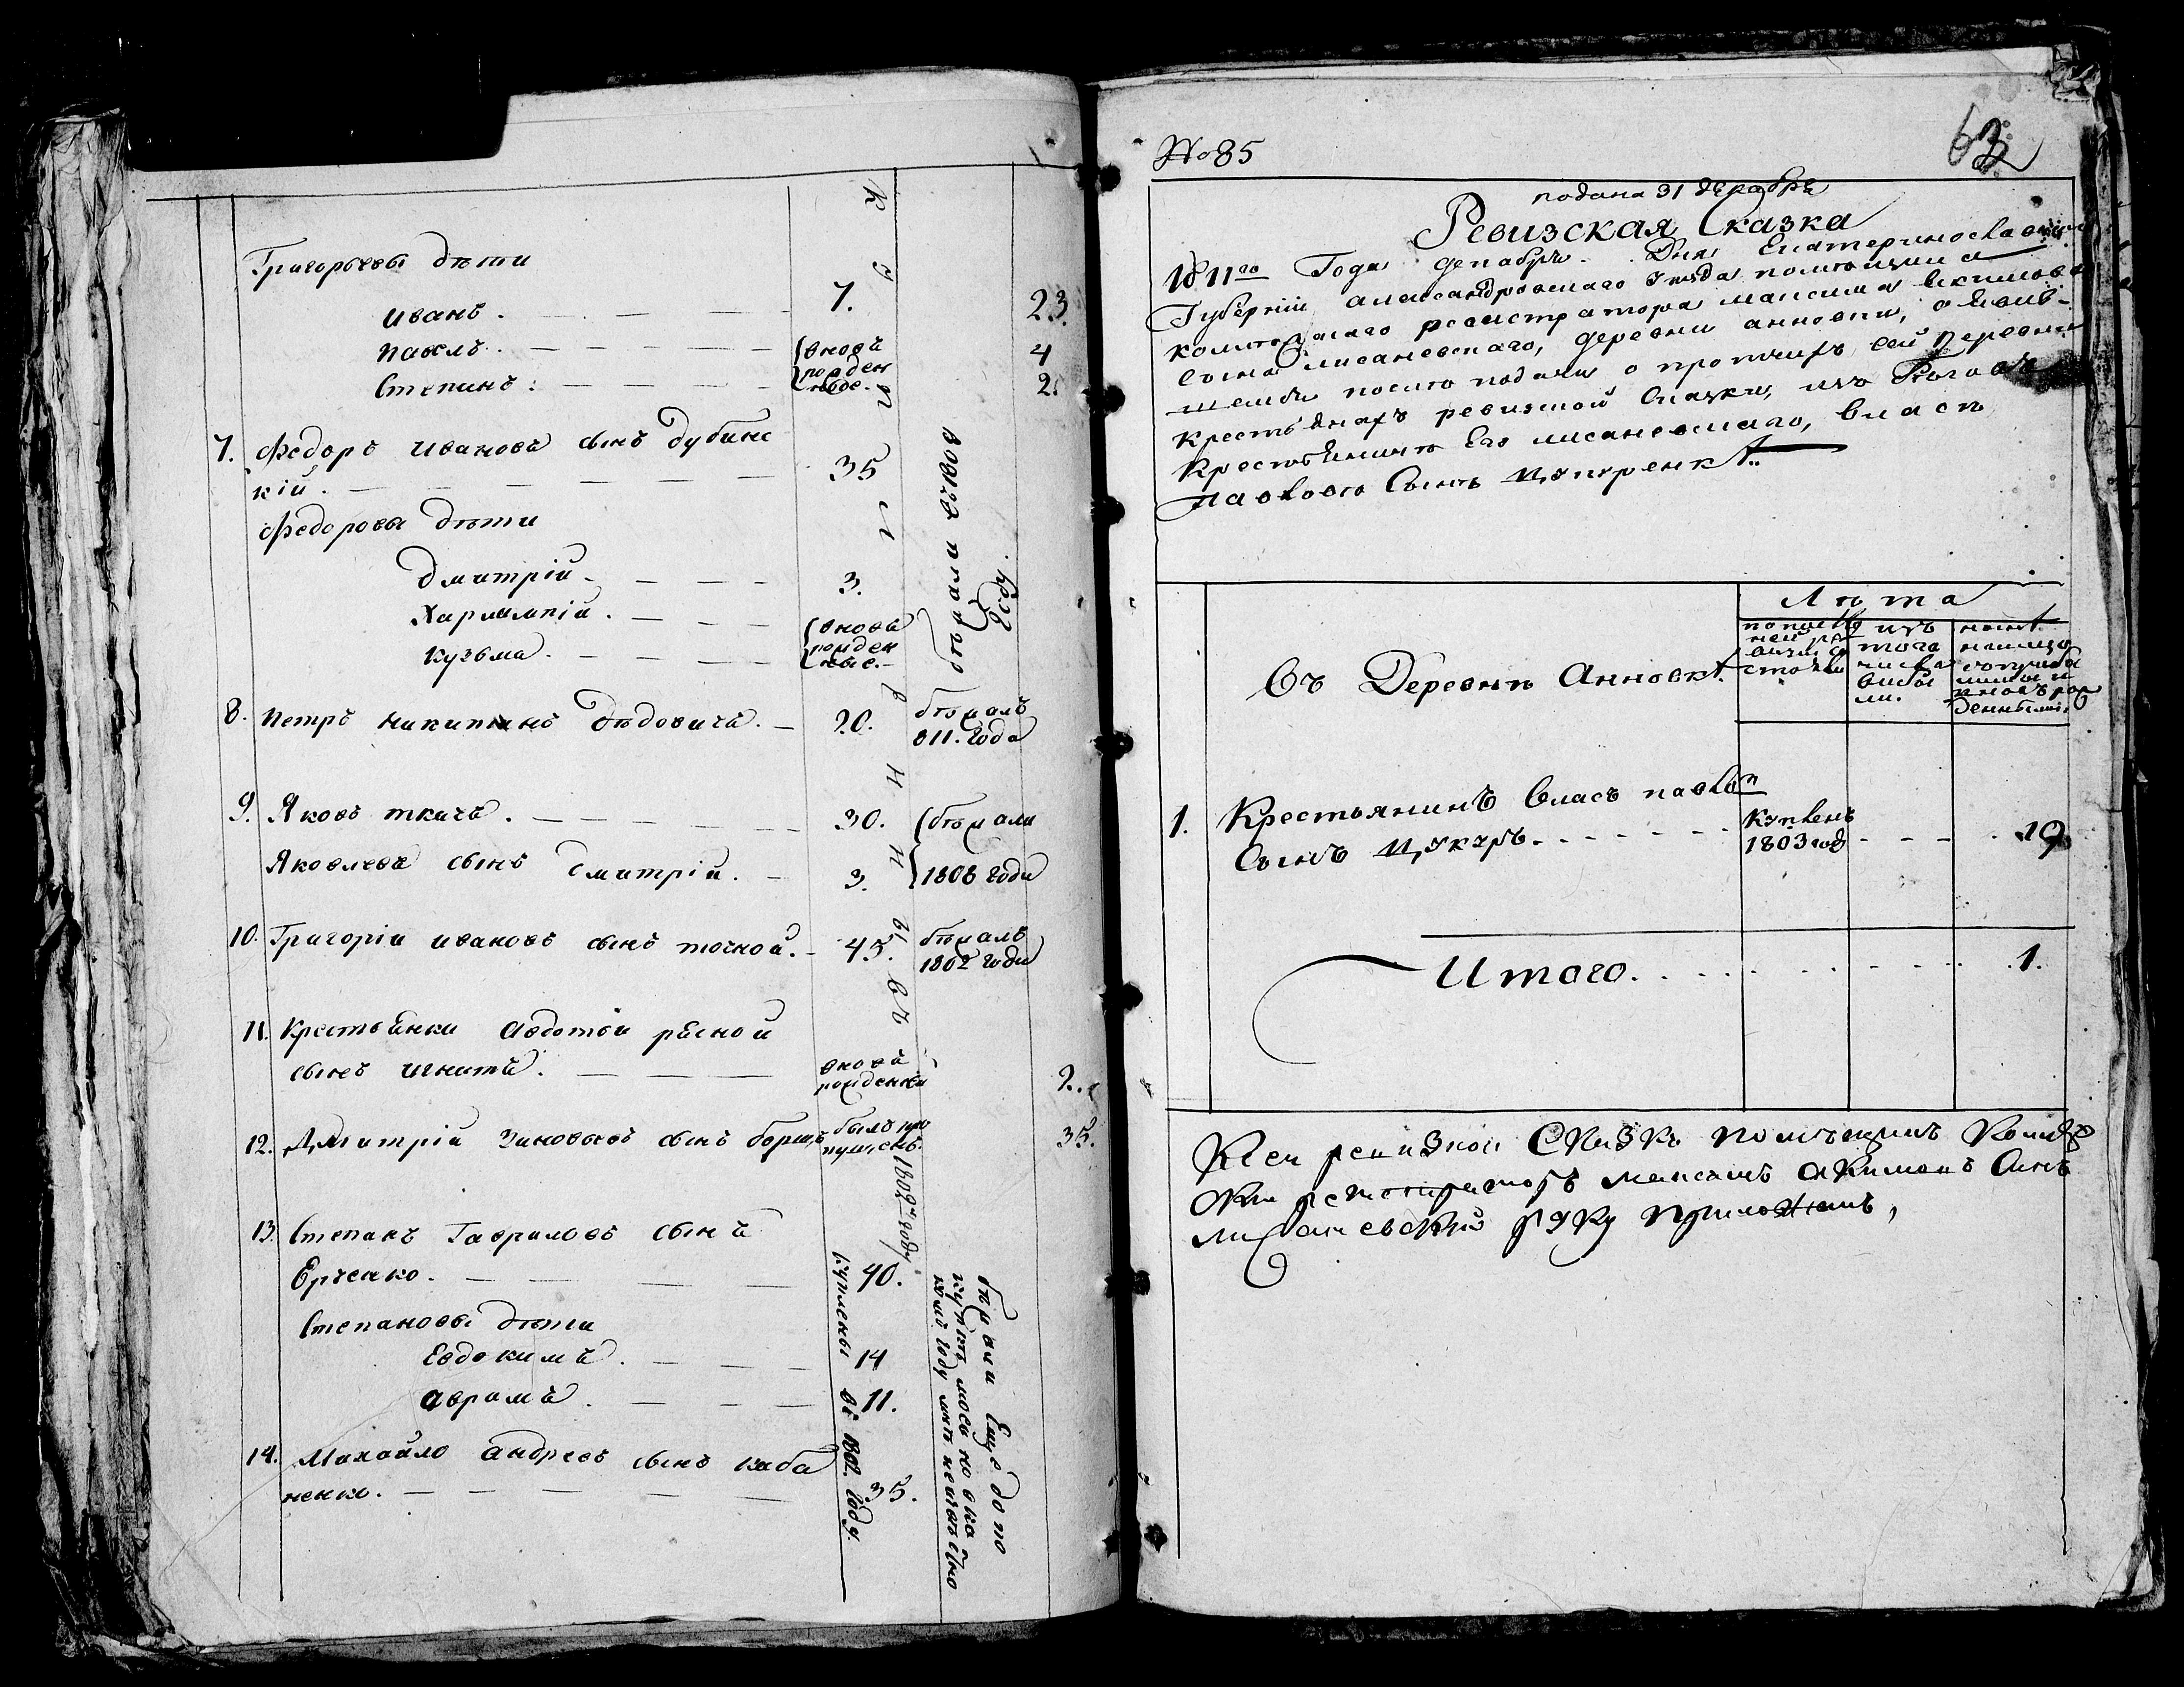 Григорьевы дѣти
иванъ. 7. 23.
павелъ. вновь 4
Степанъ. рожден ные. 2.
7. Федоръ ивановъ сынъ дубинс
кій. 35
Федоровы дѣти
дмитрій. 3.
Харлампій. вновь
кузьма. рожден ные.
бѣжали
году.
8. петръ никитинъ дѣдовичъ. 20. бѣжалъ
811. года
9. Яковъ ткачъ. 30. бѣжали
Яковлевъ сынъ дмитрій. 3. 1808 года
10. Григорій ивановъ сынъ точной. 45. бѣжалъ
1802 года
11. Крестьянки авдотьи
сынъ игнатъ. вновь рожденный 2.
12. Дмитрій Зиновьевъ сынъ борщъ былъ про пущенъ. 35.
13. Степанъ Гавриловъ сынъ
Ерченко. 40.
Степановы дѣти
Евдокимъ. 14
аврамъ. 11.
14. Михайло андреевъ сынъ каба
ненко. 35.
куплены въ 1802 году.
бѣжали Еще до по
купки мною но въ ко
году мнѣ неизвѣстно
№ 85
63
подана 31 декабря
Ревизская Сказка
1811го Года декабря. Дня Екатеринославской
Губерніи александровскаго уезда помѣщика
колежскаго регистратора максима Екимова
Сына лисаневскаго, деревни анновки, о
посли подачи о прошлой сей деревни
крестьянахъ ревизской Сказки, изъ
Крестьянинѣ Его лисаневскаго, власѣ
павловѣ Сынѣ Цукуренкѣ.
Лѣта
Въ Деревнѣ Анновкѣ.
по послѣд
ней ре
визіи со
стояли
изъ
того
числа
выбы
ли.
нынѣ
на лицо
вновь рож
денными.
1. Крестьянинъ власъ павло
Сынъ Цукуръ. Купленъ
1803 год 19.
Итого. 1.
К сеи ревизкои сказкѣ помѣщикъ колеж
ски регистраторъ максимъ акимовъ сынъ
лисаневский руку приложилъ,